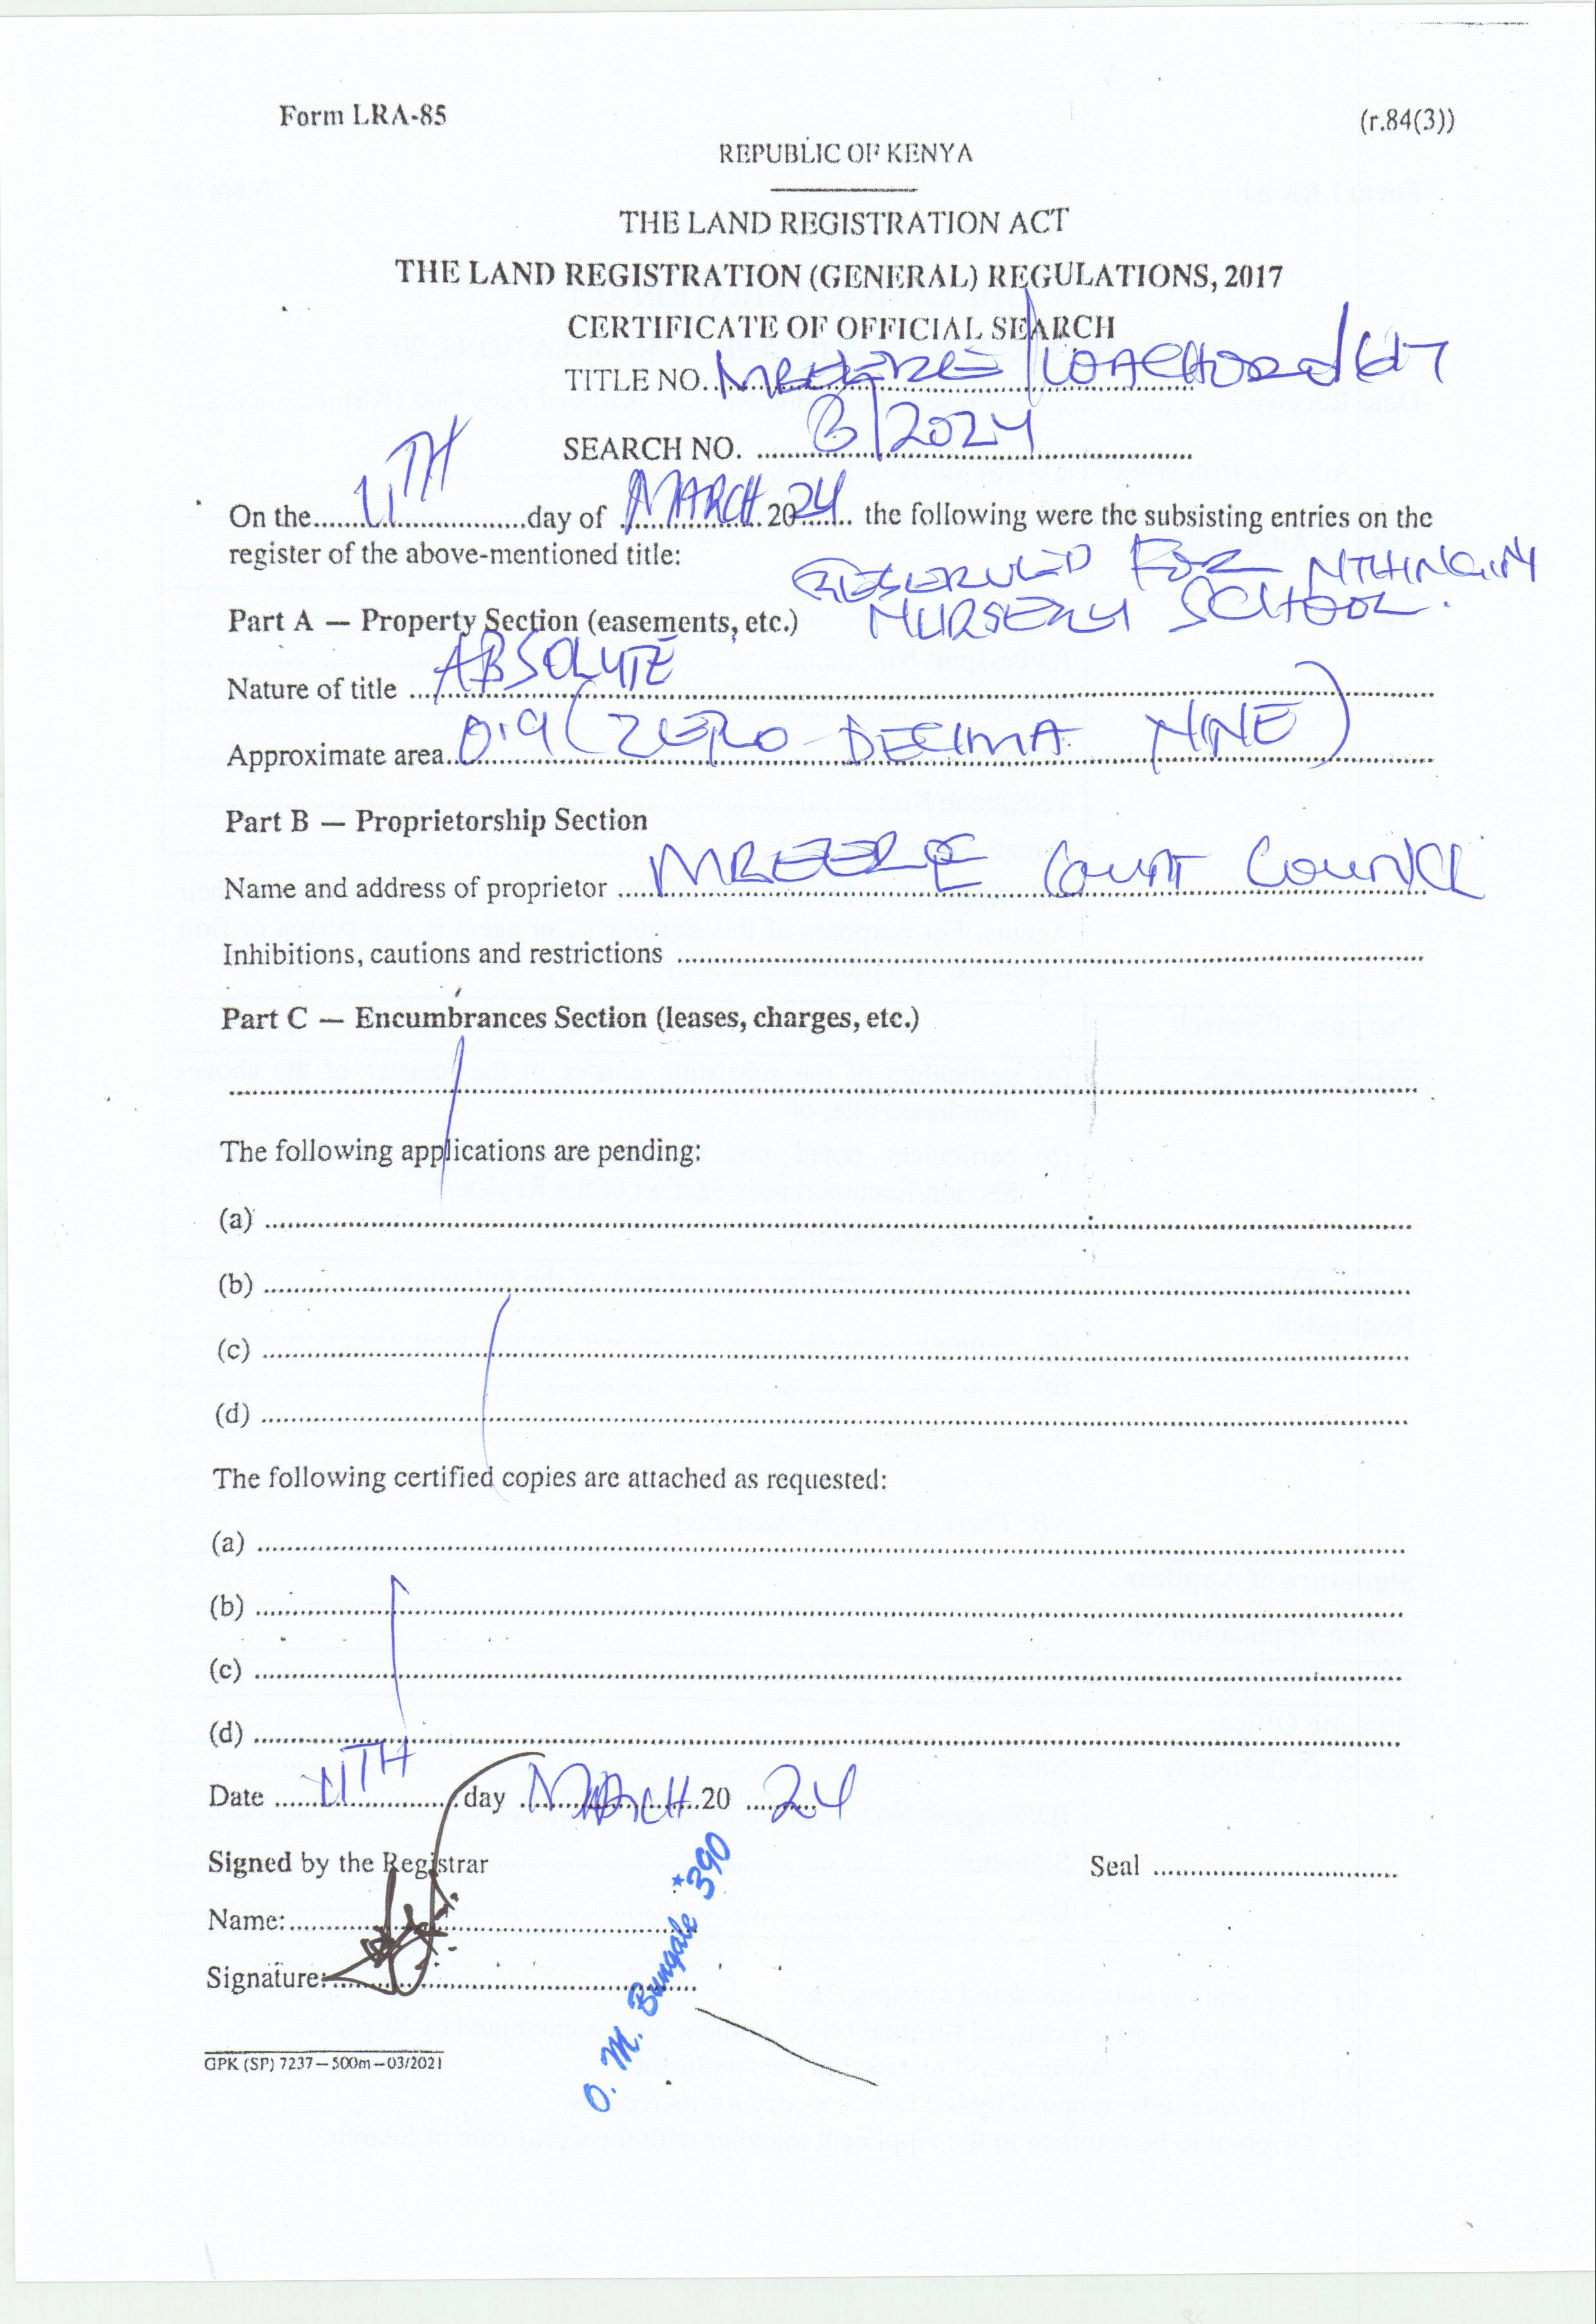 Form LRA-85 (r.84(3))
REPUBLIC OF KENYA
THE LAND REGISTRATION ACT
THE LAND REGISTRATION (GENERAL) REGULATIONS, 2017
CERTIFICATE OF OFFICIAL SEARCH
TITLE NO. MBEERE/WACHORO/617
SEARCH NO. B/2024
On the 11TH day of MARCH 2024 the following were the subsisting entries on the
register of the above-mentioned title:
RESERVED FOR
Part A — Property Section (easements, etc.) NURSERY SCHOOL.
Nature of title ABSOLUTE
Approximate area 0.9 (ZERO DECIMA NINE)
Part B — Proprietorship Section
Name and address of proprietor MBEERE COUNT COUNCIL
Inhibitions, cautions and restrictions
Part C — Encumbrances Section (leases, charges, etc.)
The following applications are pending:
(a)
(b)
(c)
(d)
The following certified copies are attached as requested:
(a)
(b)
(c)
(d)
Date 11TH day MARCH 20 24
Signed by the Registrar Seal
Name:
Signature:
O. M. Bungale *390
GPK (SP) 7237—500m—03/2021